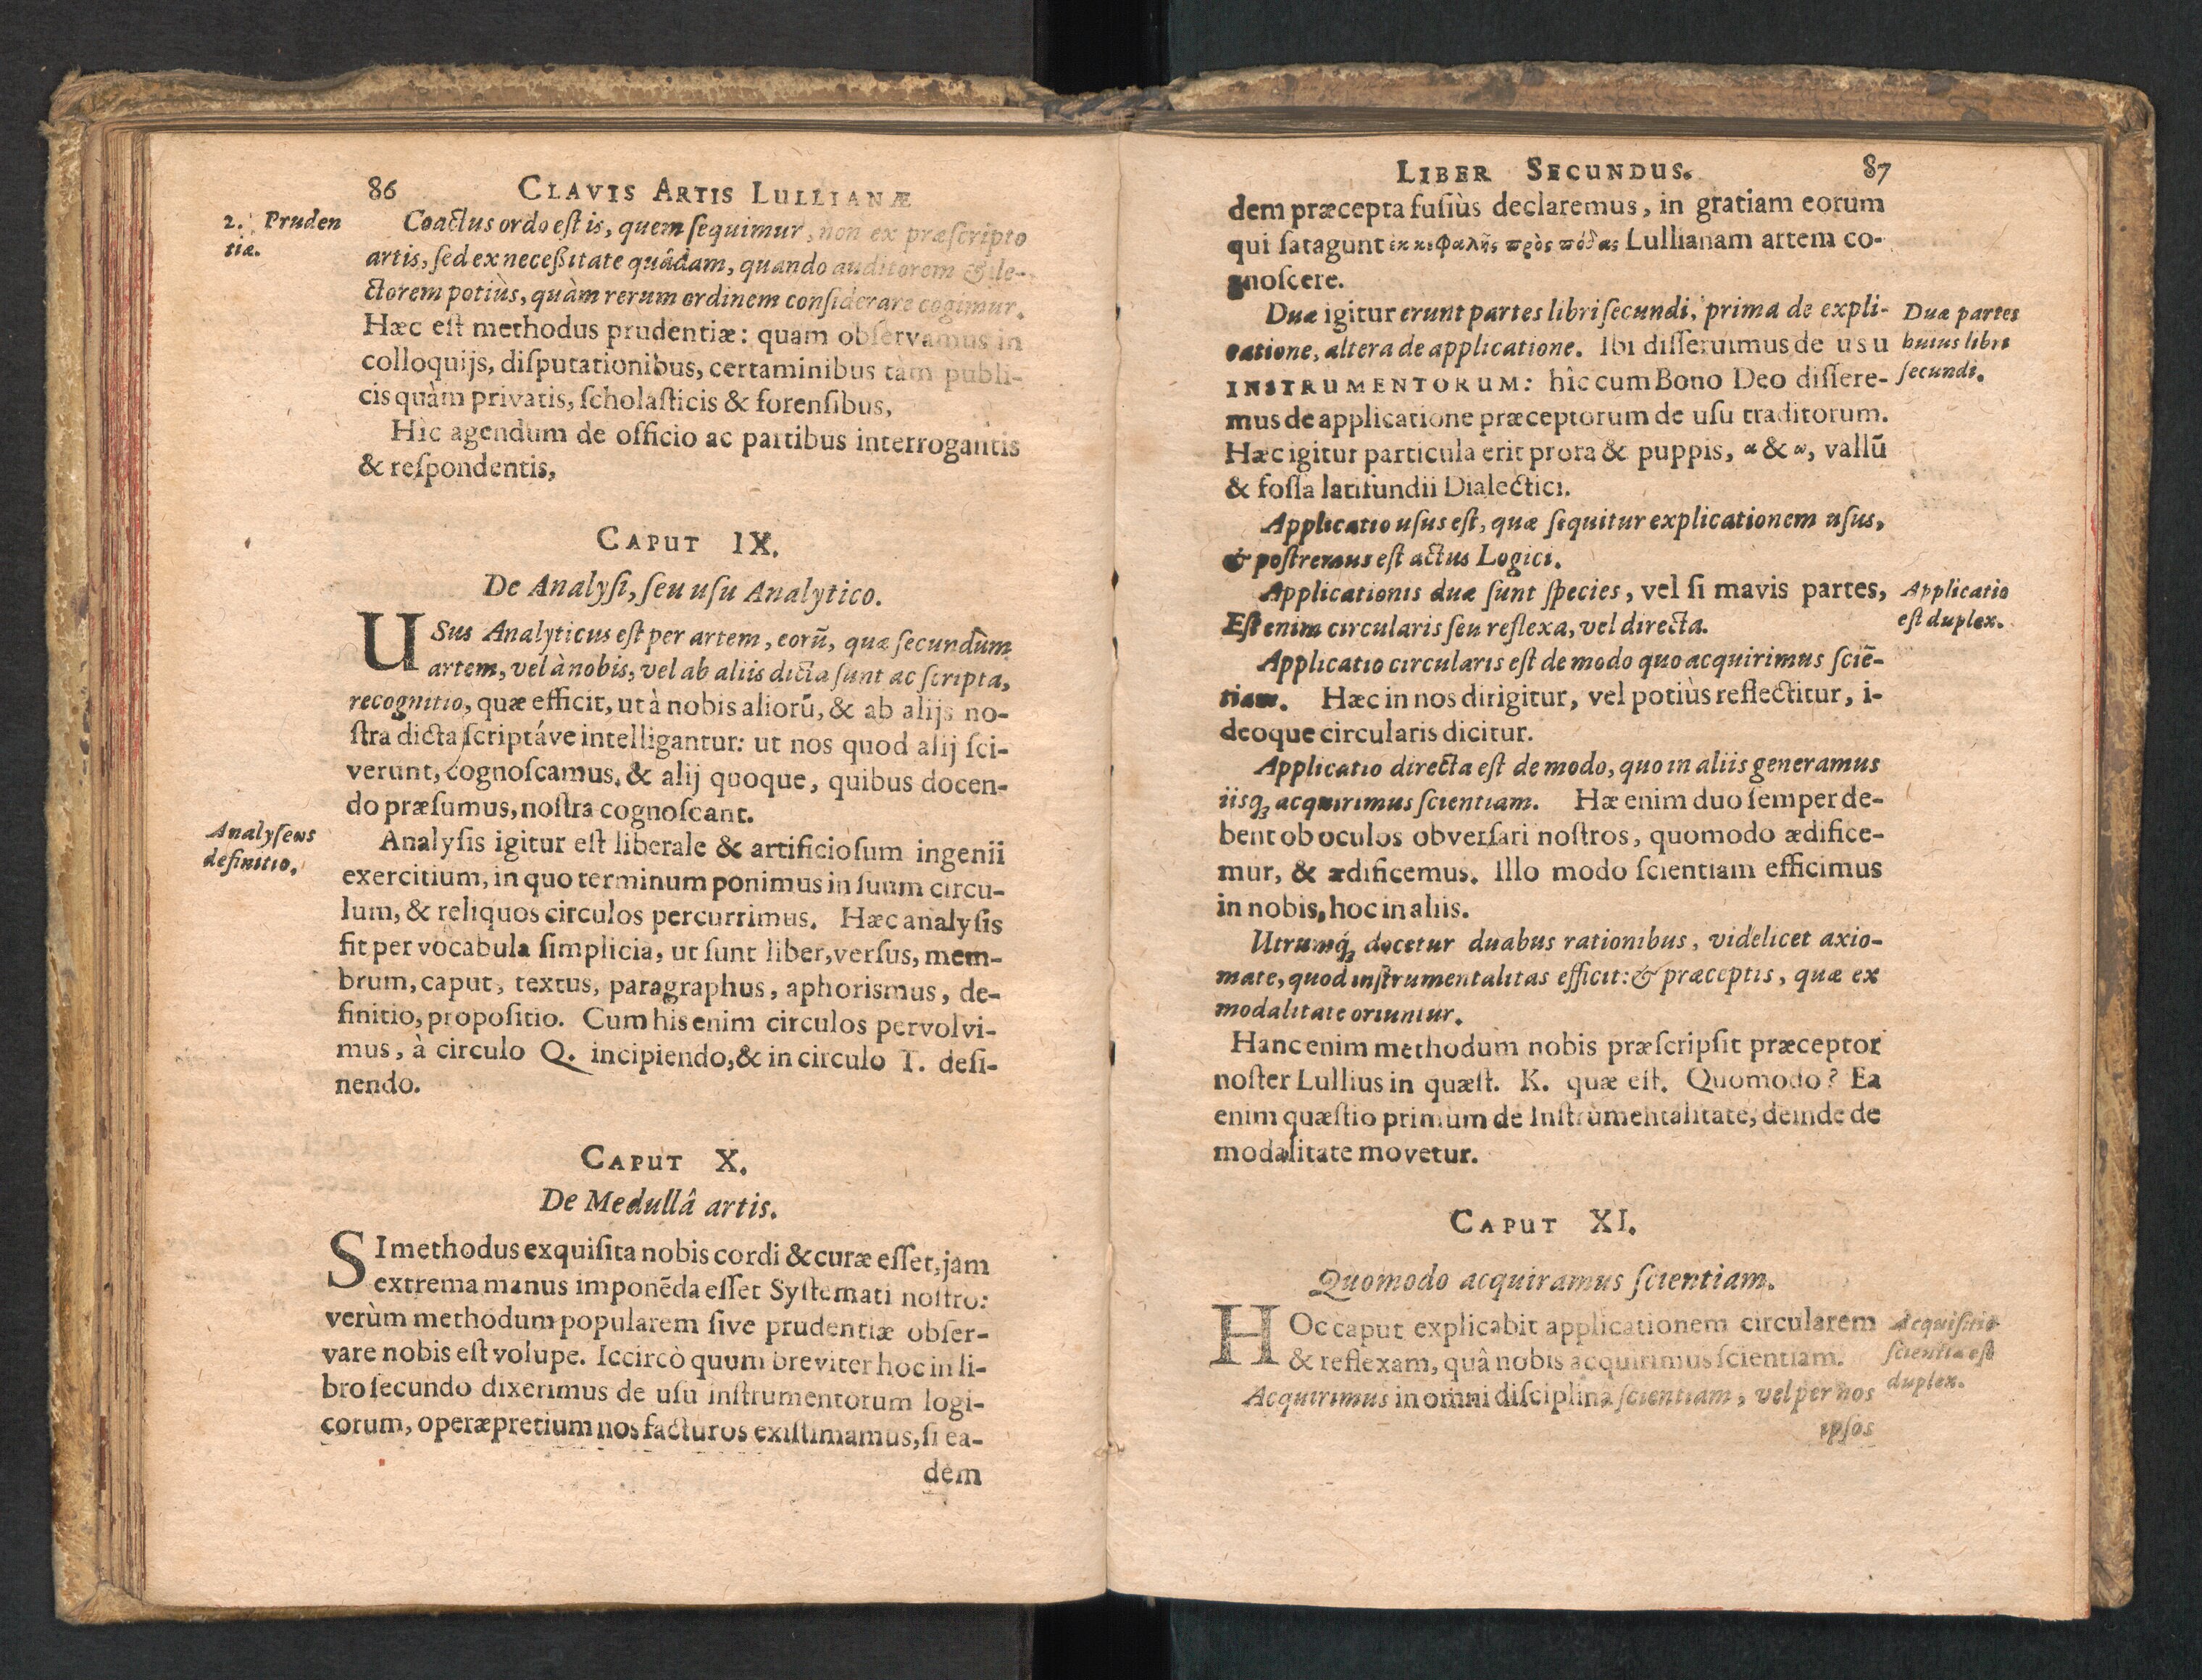 86 CLAVIS ARTIS LULLIANÆ
2. Pruden
tiæ.
Coactus ordo est is, quem sequimur, non ex præscripto
artis, sed ex necessitate quâdam, quando auditorem & le-
ctorem potiùs, quàm rerum ordinem considerare cogimur.
Hæc est methodus prudentiæ: quam observamus in
colloquijs, disputationibus, certaminibus tàm publi-
cis quàm privatis, scholasticis & forensibus,
Hîc agendum de officio ac partibus interrogantis
& respondentis,
CAPUT IX.
De Analysi, seu usu Analytico.
USus Analyticus est per artem, eorū, quæ secundùm
artem, vel à nobis, vel ab aliis dicta sunt ac scripta,
recognitio, quæ efficit, ut à nobis aliorū, & ab alijs no-
stra dicta scriptáve intelligantur: ut nos quod alij sci-
verunt, cognoscamus, & alij quoque, quibus docen-
do præsumus, nostra cognoscant.
Analyseωs
definitio.
Analysis igitur est liberale & artificiosum ingenii
exercitium, in quo terminum ponimus in suum circu-
lum, & reliquos circulos percurrimus. Hæc analysis
fit per vocabula simplicia, ut sunt liber, versus, mem-
brum, caput, textus, paragraphus, aphorismus, de-
finitio, propositio. Cum his enim circulos pervolvi-
mus, à circulo Q. incipiendo, & in circulo T. desi-
nendo.
CAPUT X.
De Medullâ artis.
SI methodus exquisita nobis cordi & curæ esset, jam
extrema manus imponēda esset Systemati nostro:
verùm methodum popularem sive prudentiæ obser-
vare nobis est volupe. Iccircò quum breviter hoc in li-
bro secundo dixerimus de usu instrumentorum logi-
corum, operæpretium nos facturos existimamus, si ea-
dem
LIBER SECUNDUS. 87
dem præcepta fusiùs declaremus, in gratiam eorum
qui satagunt ἐκ κεφαλῆς πρὸς πόδας Lullianam artem co-
gnoscere.
Duæ igitur erunt partes libri secundi, prima de expli-
catione, altera de applicatione. Ibi disseruimus de USU
INSTRUMENTORUM: hîc cum Bono Deo dissere-
mus de applicatione præceptorum de usu traditorum.
Hæc igitur particula erit prora & puppis, α & ω, vallū
& fossa latifundii Dialectici.
Duæ partes
huius libri
secundi.
Applicatio usus est, quæ sequitur explicationem usus,
& postremus est actus Logici.
Applicationis duæ sunt species, vel si mavis partes,
Est enim circularis seu reflexa, vel directa.
Applicatio
est duplex.
Applicatio circularis est de modo quo acquirimus sciē-
tiam. Hæc in nos dirigitur, vel potiùs reflectitur, i-
deoque circularis dicitur.
Applicatio directa est de modo, quo in aliis generamus
iisq́; acquirimus scientiam. Hæ enim duo semper de-
bent ob oculos obversari nostros, quomodo ædifice-
mur, & ædificemus. Illo modo scientiam efficimus
in nobis, hoc in aliis.
Utrumq́; docetur duabus rationibus, videlicet axio-
mate, quod instrumentalitas efficit: & præceptis, quæ ex
modalitate oriuntur.
Hanc enim methodum nobis præscripsit præceptor
noster Lullius in quæst. K. quæ est. Quomodo? Ea
enim quæstio primùm de Instrumentalitate, deinde de
modalitate movetur.
CAPUT XI.
Quomodo acquiramus scientiam.
HOc caput explicabit applicationem circularem
& reflexam, quâ nobis acquirimus scientiam.
Acquirimus in omni disciplina scientiam, vel per nos
ipsos
Acquisitio
scientiæ est
duplex.